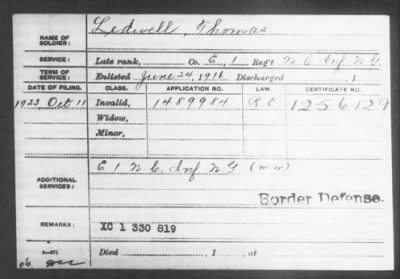 NAME OF SOLDIER: Ledwell, Thomas
SERVICE: Late rank, Co. E, 1 Reg't N C Inf N G.
TERM OF SERVICE: Enlisted June 24, 1916 Discharged , 1
DATE OF FILING. CLASS. APPLICATION NO. LAW. CERTIFICATE NO.
1933 Oct 11 Invalid, 1489984 1256129
Widow,
Minor,
ADDITIONAL SERVICES: E 1 N C Inf N G (W W)
Border Defense.
REMARKS: XC 1 330 819
Died , 1 , at